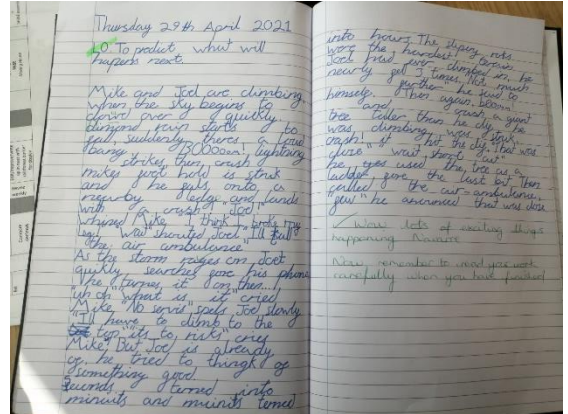 Thursday 29th April 2021
LO: To predict what will
happens next.
Mike and Joel are climbing,
when the sky begins to
cloud over quickly.
dimond rain starts to
fall, suddenly theres a loud
bang. "BOOOOom! lightning
strikes then crash a
mikes foot hold is struk
and he falls onto a
nearby ledge and lands
with a crash "Joel"
whined Mike "I think I broke my
leg" "Wa" shouted Joel "I'll call
the air ambulance"
As the storm rages on, Joel
quikly searches fore his phone
he turnes it on then...!
"what is it" cried
Mike "No servis" spels Joel slowly
"I'll have to climb to the
top" "its to risky" cries
Mike, But Joel is already
of, he tried to thingk of
something good.
Seconds turned into
minuits and muinits turned
into hours The slipery roks
were the hardest terain
Joel had ever climbed in, he
nearly fell 3 times. Not much
further he said to
himself. Then again, booom
and crash a giant
tree taller than the clif he
was climbing was struk
crash! it hit the clif, "that was
close" " wait short cut"
he yes used the tree as a
ladder fore the last bit. Then
called the air-ambulance,
"few" he anouned that was close
✓ Wow lots of exciting things
happening
Now remember to read your work
carefully when you have finished